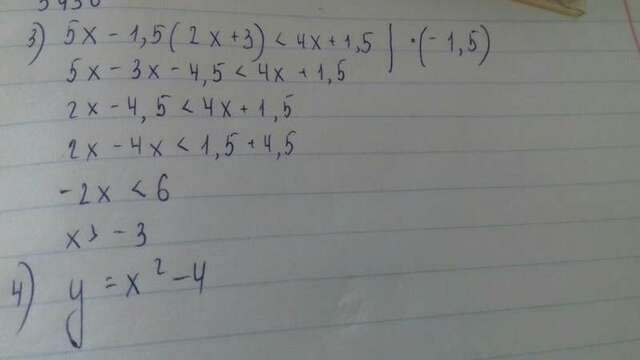 3) 5x - 1,5(2x+3) < 4x+1,5 | · (-1,5)
5x - 3x - 4,5 < 4x + 1,5
2x - 4,5 < 4x + 1,5
2x - 4x < 1,5 + 4,5
-2x < 6
x > -3
4) y = x² - 4